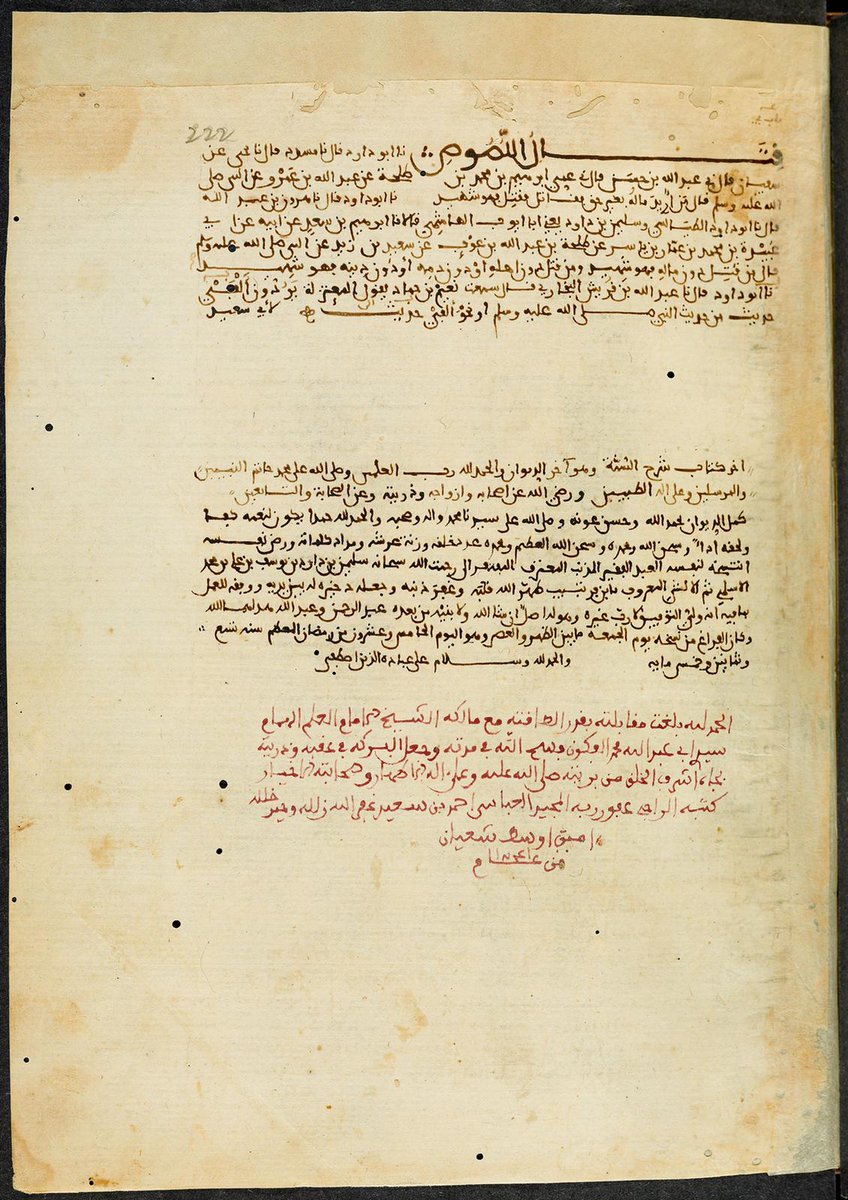 222
قتال اللصوص نا ابو داود قال نا مسدد قال نا يحيى عن
سفيان قال ني عبد الله بن حسن قال ني عمي ابرهيم بن محمد بن طلحة عن عبد الله بن عمرو عن النبي صلى
الله عليه وسلم قال من اريد ماله بغير حق فقاتل فقتل فهو شهيد نا ابو داود قال نا هرون بن عبد الله
قال نا ابو داود الطيالسي وسليمن بن داود يعني ابا ايوب الهاشمي قالا نا ابرهيم بن سعيد عن ابيه عن ابي
عبيدة بن محمد بن عمار بن ياسر عن طلحة بن عبد الله بن عوف عن سعيد بن زيد عن النبي صلى الله عليه وسلم
قال من قتل دون ماله فهو شهيد ومن قتل دون اهله او دون دمه او دون دينه فهو شهيد
نا ابو داود قال نا عبد الله بن قريش البخاري قال سمعت نعيم بن حماد يقول المعتزلة يردون الفي
حديث من حديث النبي صلى الله عليه وسلم او نحو الفي حديث لابي سعيد
اخر كتاب شرح السنة وهو آخر الديوان والحمد لله رب العلمين وصلى الله على محمد خاتم النبيين
والمرسلين وعلى اله الطيبين ورضي الله عن اصحابه وازواجه وذريته وعن الصحابة والتابعين
كمل الديوان بحمد الله وحسن عونه وصلى الله على سيدنا محمد واله وصحبه والحمد لله حمدا يكون لنعمه
ولحقه اداء وسبحن الله وبحمده وسبحن الله العظيم وبحمده عدد خلقه وزنة عرشه ومداد كلماته ورضى نفسه
انتسخه لنفسه العبد الفقير المذنب المعترف المفتقر الى رحمت الله سبحانه سليمن بن داود بن يوسف بن محمد
ثم المعروف طهر الله قلبه وغفر ذنبه وجعله ذخيره له بين يديه ووفقه للعمل
بما فيه انه ولي التوفيق لا رب غيره وهو له اصل ان شا الله ولابنيه من بعده عبد الرحمن وعبد الله هداهما الله
وكان الفراغ من نسخه يوم الجمعة ما بين الظهر والعصر وهو اليوم الخامس وعشرون من رمضان المعظم سنه تسع
وثمانين وخمس مايه والحمد لله وسلام على عباده الذين اصطفى
الحمد لله بلغت مقابلته بقدر الطاقة مع مالكه الشيخ الامام العلم الهمام
سيدي ابي عبد الله محمد فسح الله في مدته وجعل البركة في عقبه وذريته
بجاه اشرف الخلق من بريته صلى الله عليه وعلى اله الاطهار وصحابته الاخيار
كتبه الراجي عفو ربه المجيد العباسي احمد بن سعيد غفر الله زلله وجبر خلله
اوسط شعبان
من عام